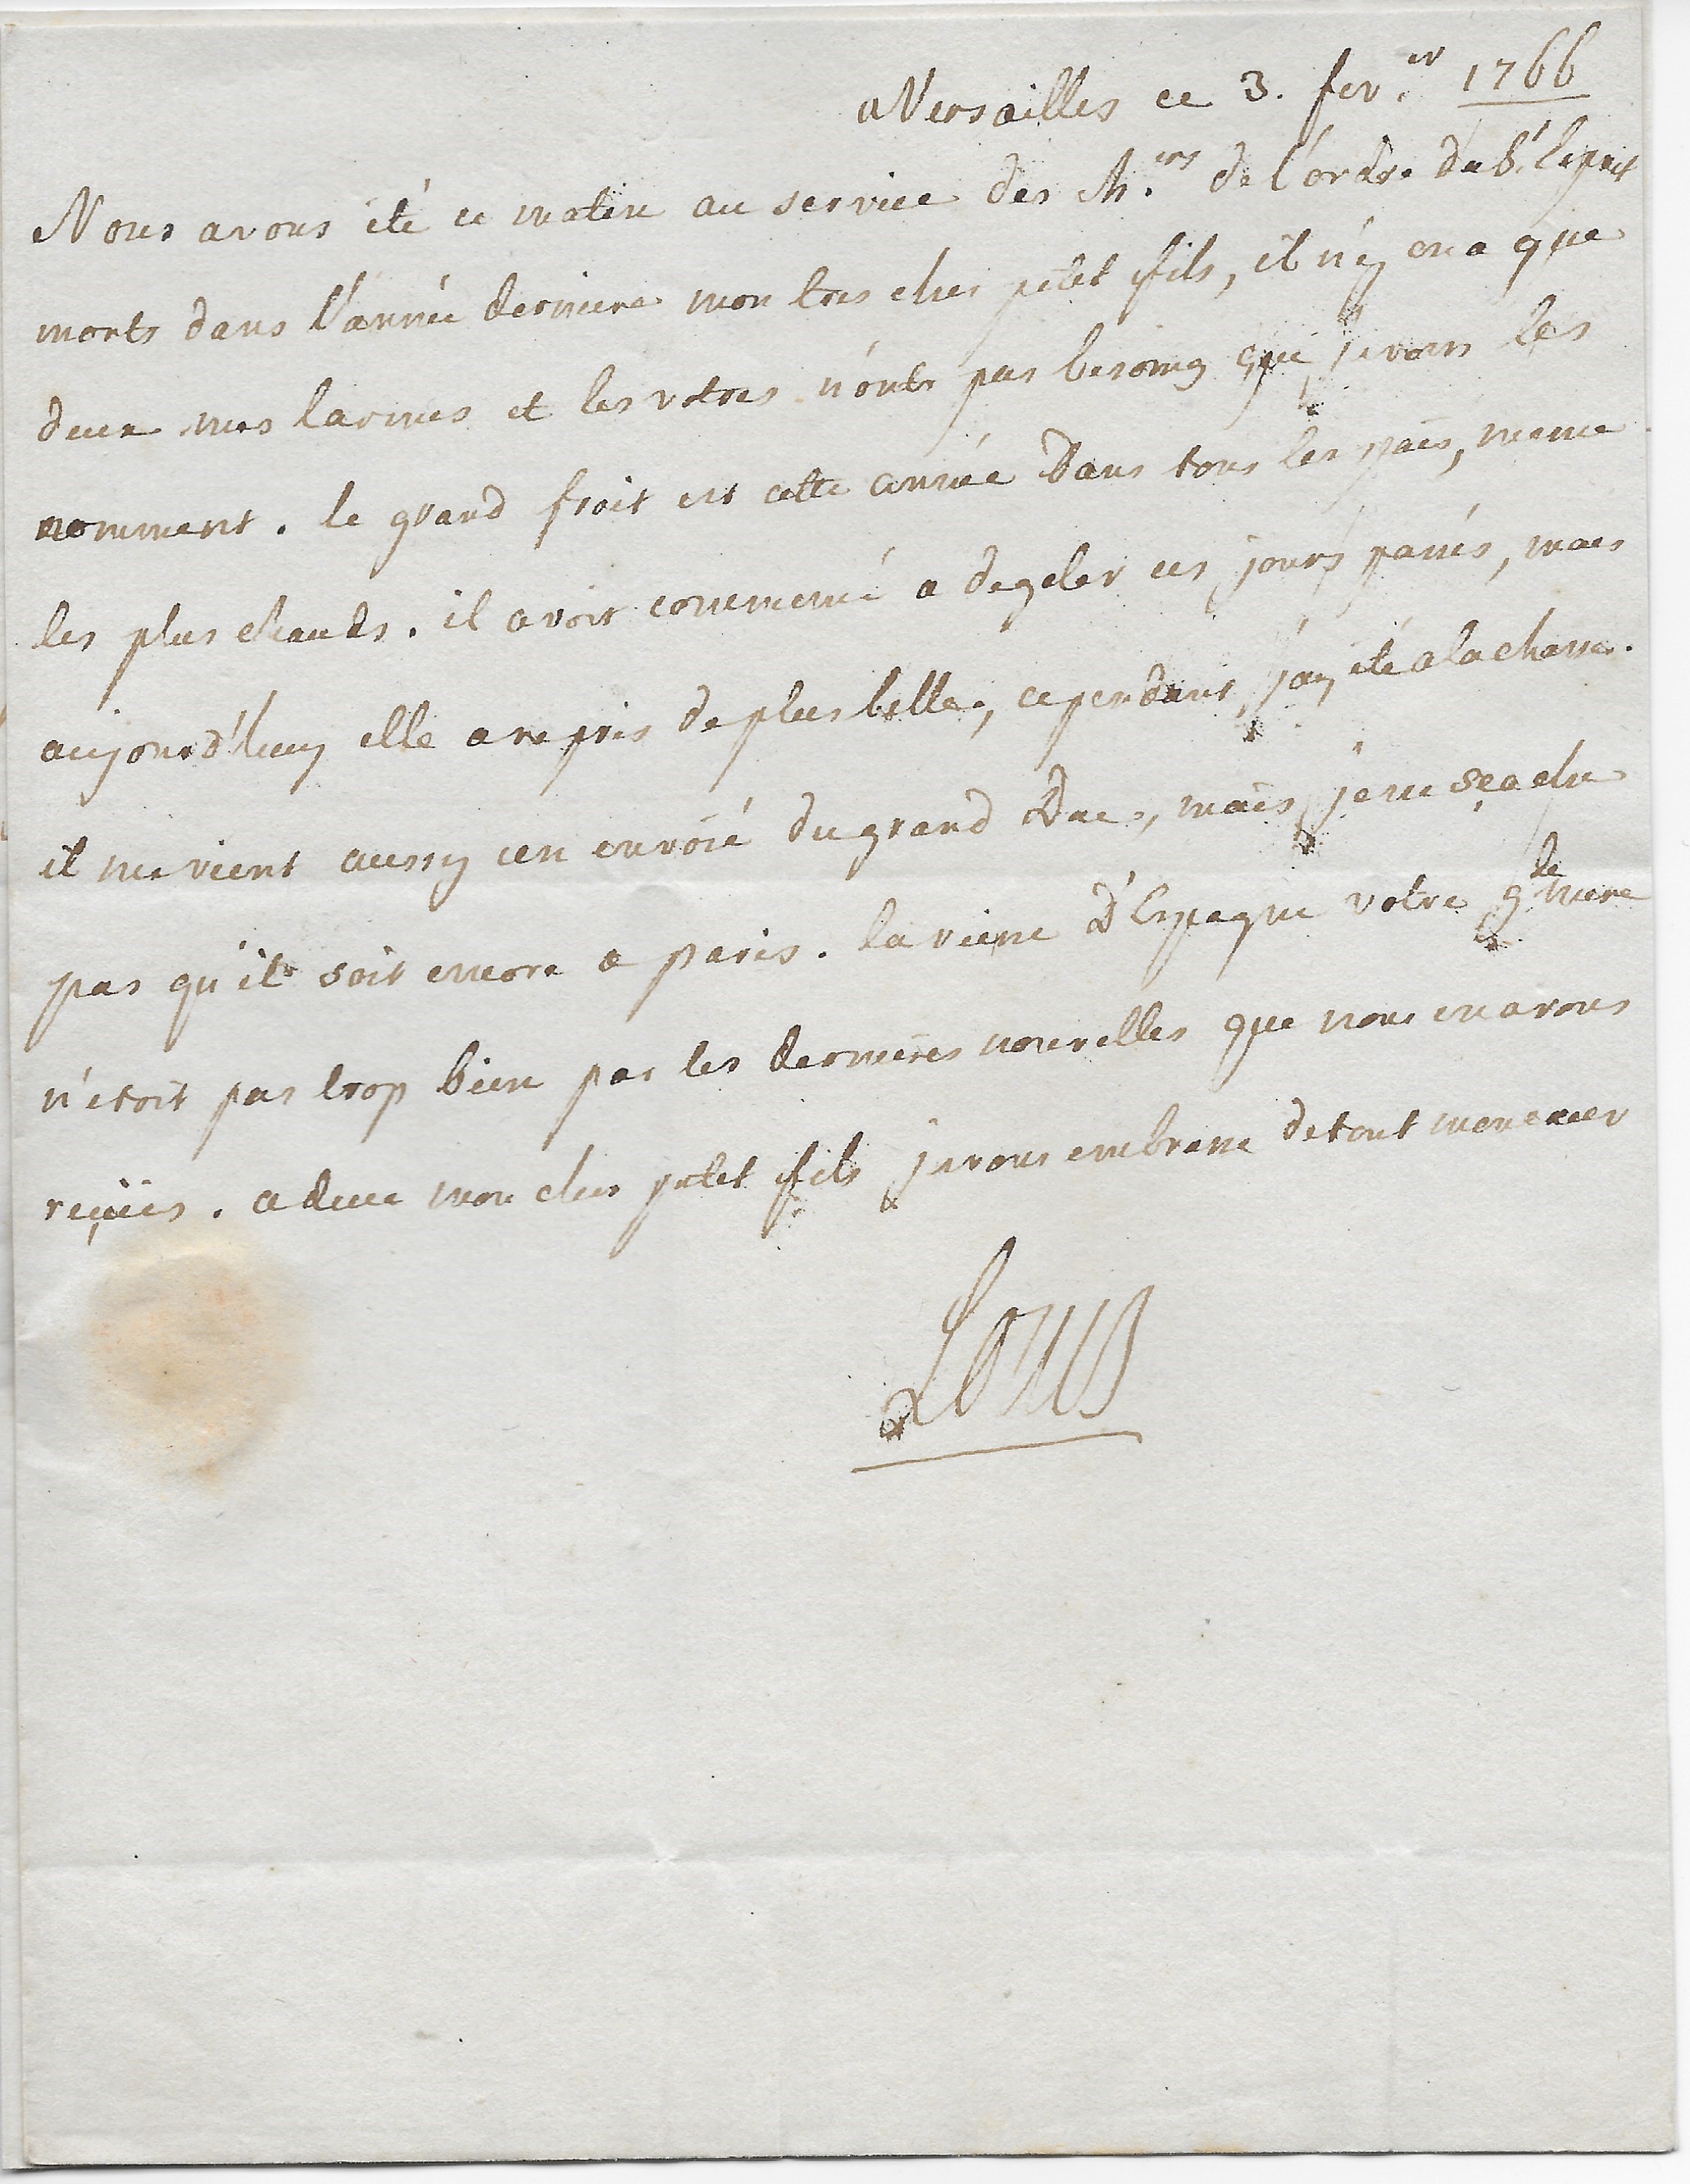 a Versailles ce 3. fev.er 1766
Nous avons été ce matin au service des Ch.ers de l'ordre du St. Esprit
morts dans l'année derniere mon tres cher petit fils, il n'y en a que
deux mes larmes et les votres n'onts pas besoing que je vous les
nomment. le grand froit est cette année dans tous les païs, meme
les plus chauds. il avoit commencé a degeler ces jours passés, mais
aujourd'huy elle a repris de plus belle, cependant j'ay été a la chasse.
il me vient aussy un envoié du grand Duc, mais je ne sçache
pas qu'il soit encore a paris. la reine d'Espagne votre gde mere
n'etoit pas trop bien par les dernieres nouvelles que nous en avons
reçües. adieu mon cher petit fils je vous embrasse de tout mon cuer
Louis